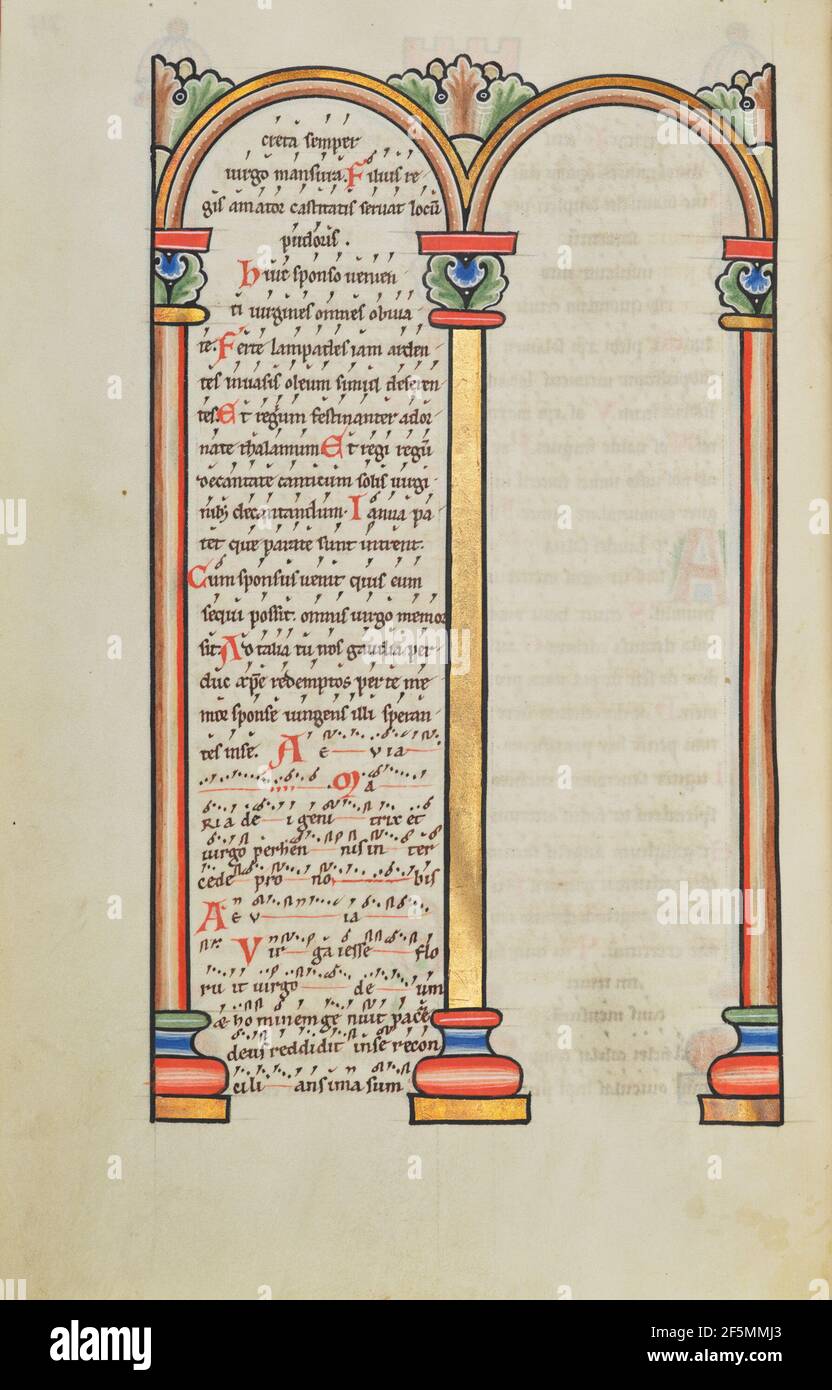 creta semper
uirgo mansura. Filius re
gis amator castitatis seruat locū
pudoris.
Huic sponso uenien
ti uirgines omnes obuia
te. Ferte lampades iam arden
tes inuasis oleum simul deferen
tes. Et regum festinanter ador
nate thalamum Et regi regū
decantate canticum solis uirgi
nibꝫ decantandum. Ianua pa
tet que parate sunt intrent.
Cum sponsus uenit quis eum
sequi possit. omnis uirgo memor
sit. Ao talia tu nos gaudia per
duc xp̄e redemptos per te me
mor sponse iungens illi speran
tes inse. A E VIA
MA
RIA de i geni trix et
uirgo perhen nis in ter
cede pro no bis
A E V ia
Vir ga iesse flo
ru it uirgo de um
æ hominem ge nuit pacē
deus reddidit inse recon
cili ans ima sum
a
alamy
Image ID: 2F5MMJ3
www.alamy.com